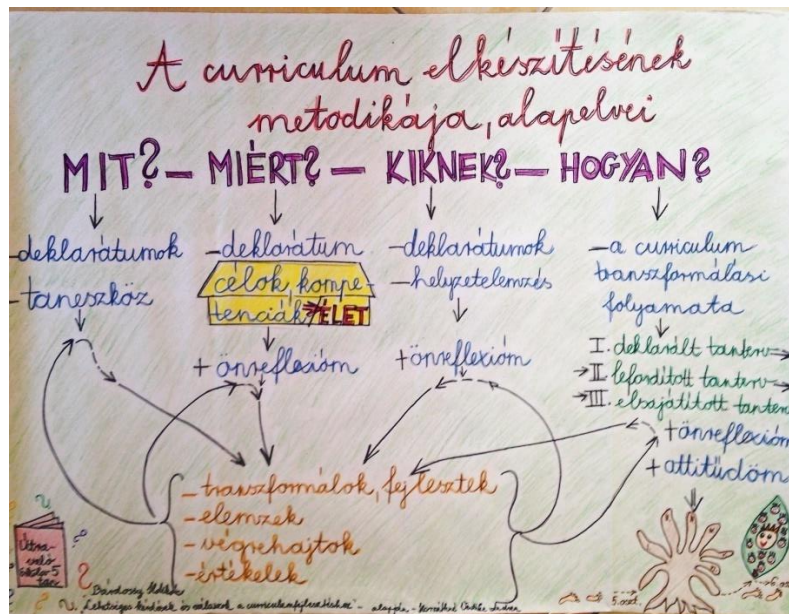 A curriculum elkészítésének
metodikája, alapelvei
MIT? – MIÉRT? – KIKNEK? – HOGYAN?
-deklarátumok
-taneszköz
-deklarátum
célok, kompe-
tenciák ÉLET
+ önreflexióm
-deklarátumok
-helyzetelemzés
+önreflexióm
-a curriculum
transzformálási
folyamata
I. deklarált tanterv
II. lefordított tanterv
III. elsajátított tanterv
+önreflexióm
+attitűdöm
-transzformálok, fejlesztek
-elemzek
-végrehajtok
-értékelek
Útra-
való
5
? Bárdossy Ildikó
"Lehetséges kérdések és válaszok a curriculumfejlesztéshez" - alapján -
5.oszt.
6.o